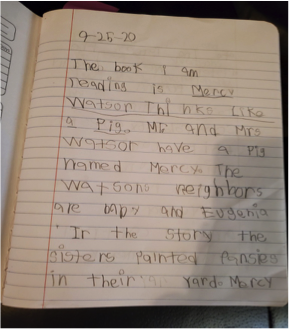 9-25-20
The book I am
reading is Mercy
Watson Thinks Like
a Pig. Mr and Mrs
Watson have a Pig
named Mercy. The
Watsons neighbors
are baby and Eugenia
In the story the
sisters Painted Pansies
in their yard. Mercy